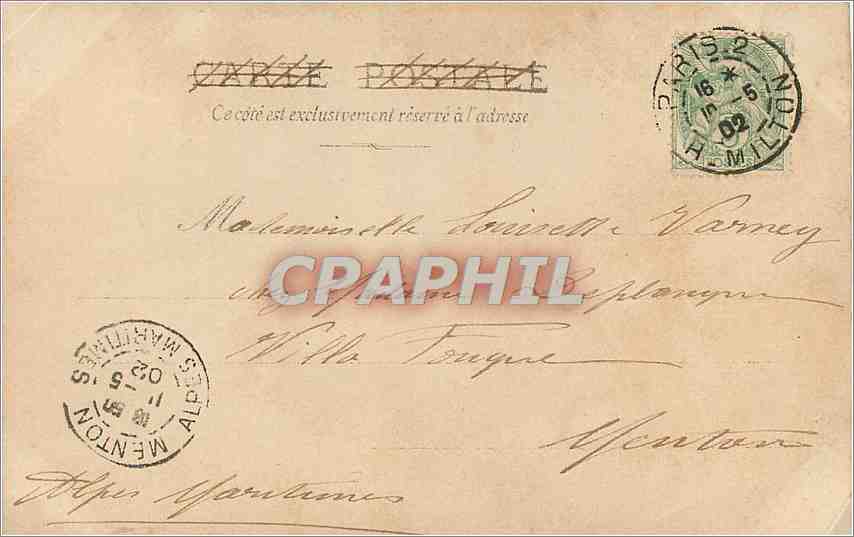 CARTE POSTALE
Ce côté est exclusivement réservé à l'adresse
PARIS_2
16 *
10 -5
02
H. MILTON
Mademoiselle Louisette Varney
chez Madame Desplanques
Villa Fouque
Menton
Alpes Maritimes
CPAPHIL
MENTON
ALPES MARITIMES
11 -5
02